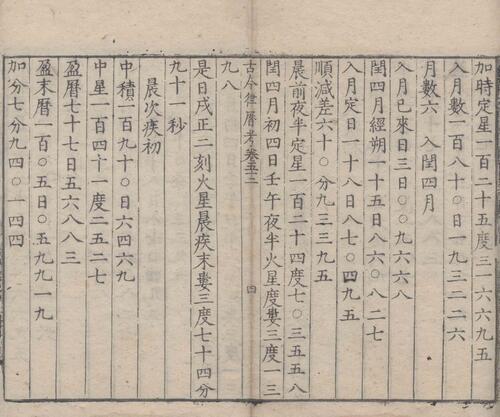 加時定星一百二十五度三一六六九五
入月數一百八十〇日一九三二二六
月數六　入閏四月
入月已來日三日〇〇九六六八
閏四月經朔一十五日八六〇八二七
入月定日一十八日八七〇四九五
順減差六十〇分九三三九五
晨前夜半定星一百二十四度七〇三五五八
閏四月初四日壬午夜半火星度婁三度一三
古今律曆考卷五三　四
九八
是日戌正二刻火星晨疾末婁三度七十四分
九十一秒
晨次疾初
中積一百九十〇日六四六九
中星一百四十一度二五二七
盈曆七十七日五六八八三
盈末曆一百〇五日〇五九九一九
加分七分九四〇一四四